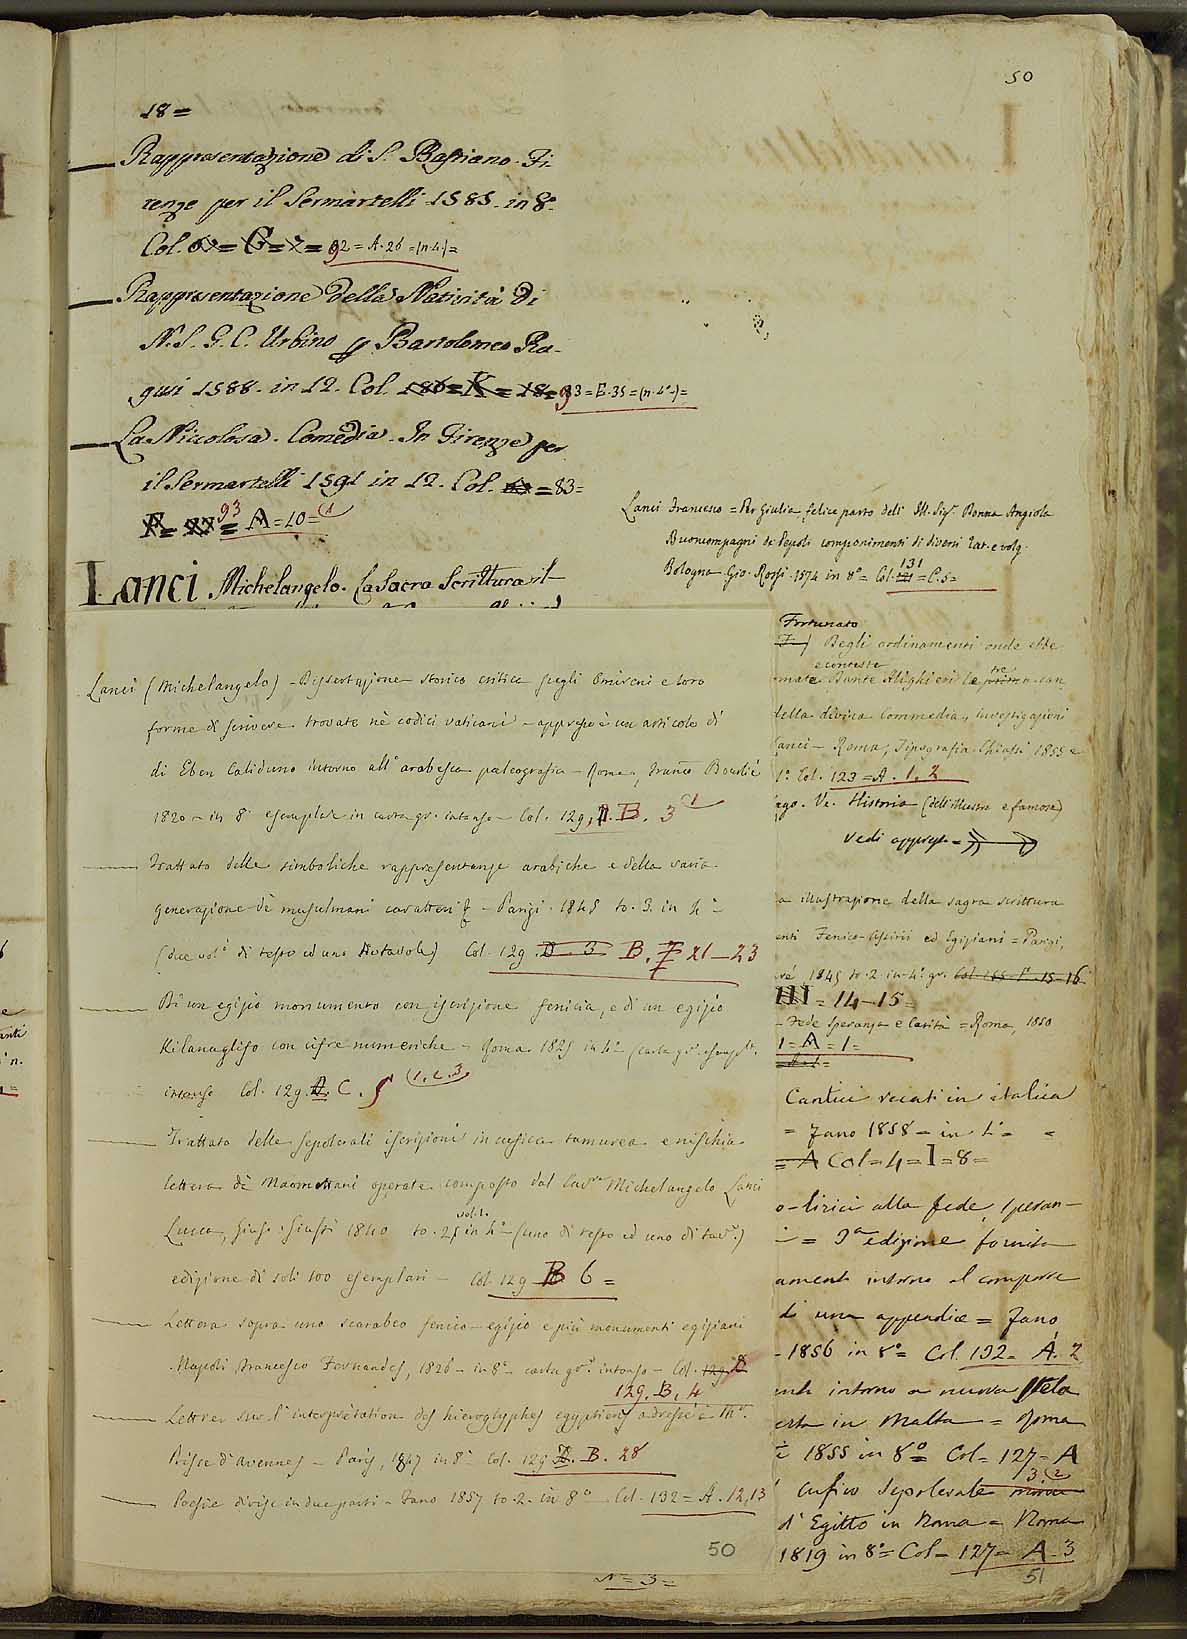 50
18=
Rappresentazione di S. Bastiano. Fi-
renze per il Sermartelli 1585. in 8°
Col. = G = 7 = 92 = A. 26 = (n. 4.) =
Rappresentazione della Natività di
N. S. G. C. Urbino p Bartolomeo Ra-
gusi 1588. in 12. Col. 186 = K = 18 = 93 = E. 35 = (n. 4°.) =
La Niccolosa. Comedia. In Firenze per
il Sermartelli 1591 in 12. Col. = 83 =
93 = A = 10 = (1
Lanci Francesco = Per Giulia felice parto dell Ill. Sig.ra Donna Angiola
Buoncompagni de Pepoli componimenti di diversi lat. e volg.
Bologna Gio. Rossi 1574 in 8° = Col. 131 = C. 5 =
Lanci Michelangelo. La Sacra Scrittura il-
Lanci (Michelangelo) - Dissertazione storico critica sugli Omireni e loro
forme di scrivere trovate nè codici vaticani - appresso è un articolo di
di Eben Caliduno intorno all'arabesca paleografia - Roma, Franc.o Bourlié
1820 - in 8° esemplar in carta gr. intonso - Col. 129, B. 3 (1
Trattato delle simboliche rappresentanze arabiche e della varia
generazione de' musulmani caratteri - Parigi 1845 to. 3. in 4°
(due vol.i di testo ed uno di tavole) Col. 129. B. XI - 23
Di un egizio monumento con iscrizione fenicia, e di un egizio
Kilanaglifo con cifre numeriche - Roma 1825 in 4° (carta gr. esempl.
intonso Col. 129. C. 5 (1. 2. 3
Trattato delle sepolcrali iscrizioni in cufica tamurea e nischia
lettera de' Maomettani operate composto dal Cav.re Michelangelo Lanci
Lucca, Gius. Giusti 1840 to. 2 vol. 1. in 4° - (uno di testo ed uno di tav.e)
edizione di soli 100 esemplari - Col. 129 B 6 =
Lettera sopra uno scarabeo fenico-egizio e più monumenti egiziani
Napoli, Francesco Fernandes, 1826 - in 8° - carta gr.e intonso - Col. 129 D
129. B. 4
Lettre sur l'interprétation des hieroglyphes egyptiens adressée à Mr.
Prisse d'Avennes - Paris, 1847 in 8° Col. 129 B. 28
Poesie divise in due parti - Fano 1857 to. 2. in 8° - Col. 132 = A. 12, 13
50
N = 3 =
Fortunato
Degli ordinamenti onde ebbe
e conteste
mate Dante Alighieri le tre can
della divina Commedia, investigazioni
Lanci - Roma, Tipografia Chiassi 1855 e
1°. Col. 123 = A. 1. 2
ago. Ve. Historia (dell'illustre e famosa)
Vedi appresso =
a illustrazione della sagra scrittura
enti Fenico-Assirii ed Egiziani = Parigi,
1845 to. 2 in 4° gr. 15-16
III = 14-15 -
- Fede Speranza e Carità = Roma, 1850
1 = A = 1 =
Cantici recati in italica
= Fano 1858 - in 4° =
= A Col = 4 = I = 8 =
o-lirici alla fede, speran-
= 3a edizione fornita
amenti intorno al comporre
di una appendice = Fano
- 1856 in 8° = Col. 132 = A. 2
intorno a nuova Stela
erta in Malta = Roma
1855 in 8° = Col = 127 = A
3 (2
cufico sepolcrale
d'Egitto in Roma = Roma
1819 in 8° = Col = 127 = A. 3
51